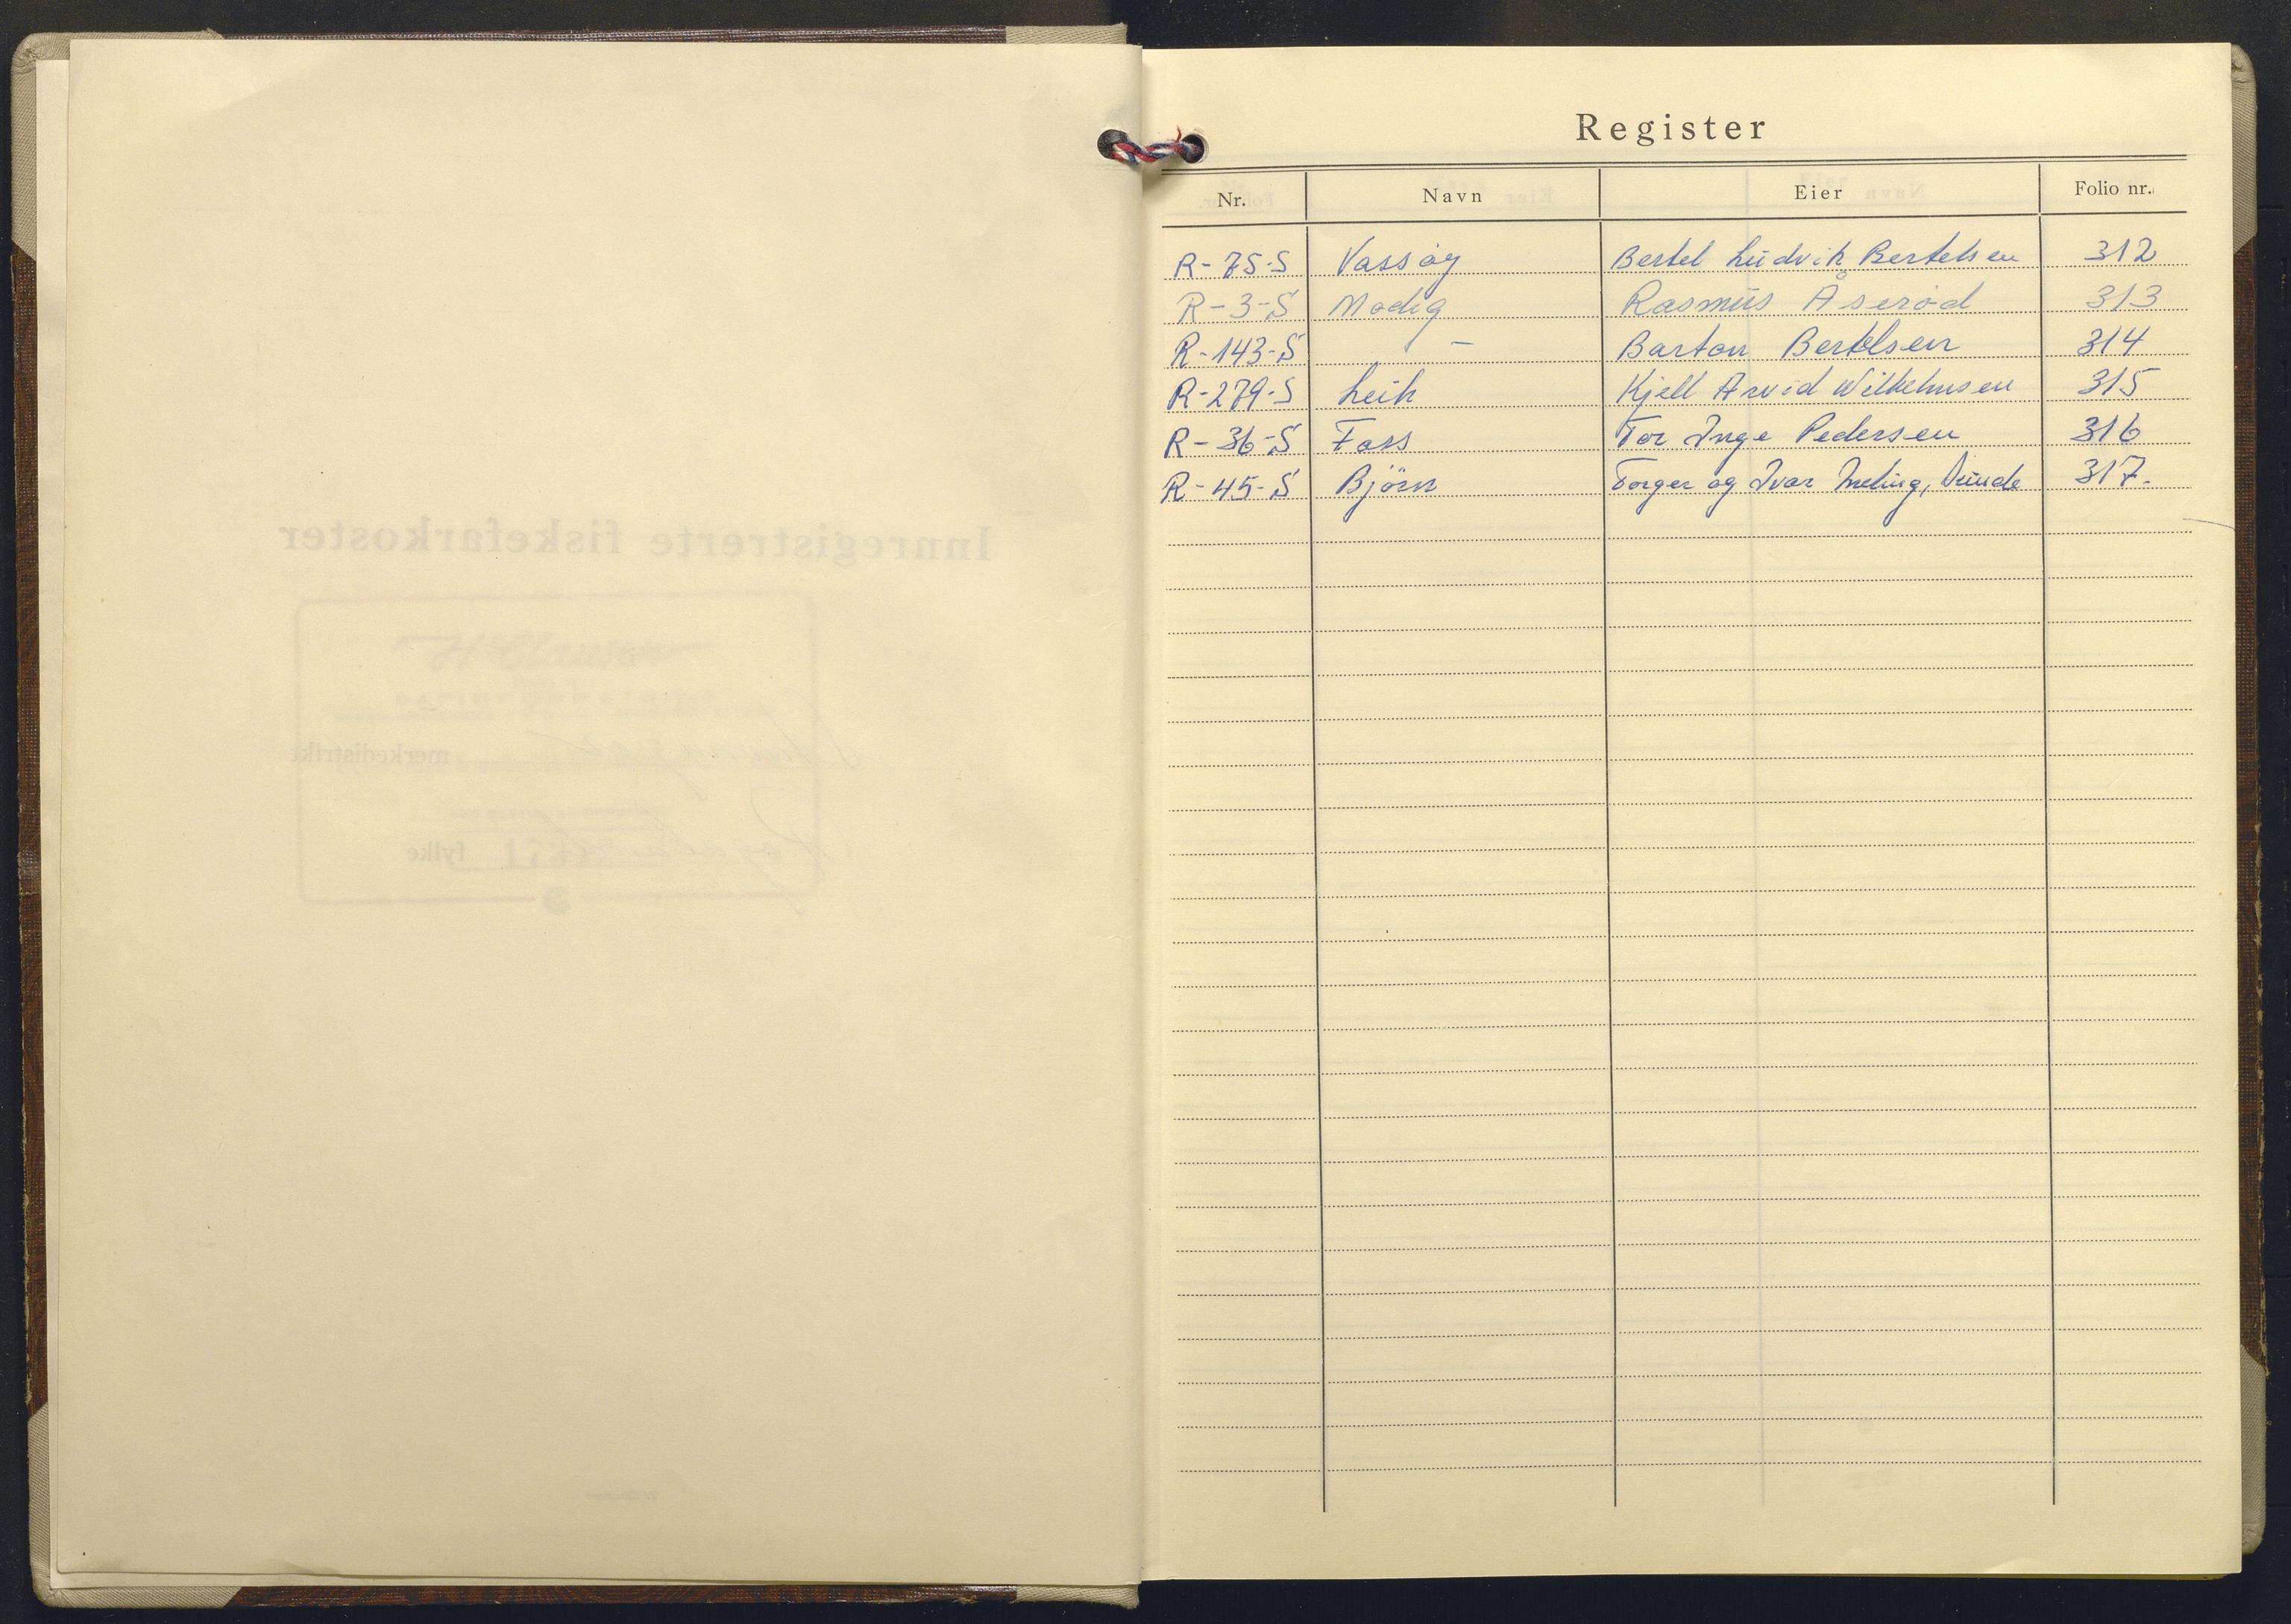 Register
Nr. Navn Eier Folio nr.
R-75-S Vassøy Bertel Ludvik Bertelsen 312
R-3-S Modig Rasmus Åserød 313
R-143-S - Barton Bertelsen 314
R-279-S Leik Kjell Arvid Wilhelmsen 315
R-36-S Foss Tor Inge Pedersen 316
R-45-S Björn Torger og Ivar Meling, 317.
Innregistrerte fiskefarkoster
merkedistrikt
fylke